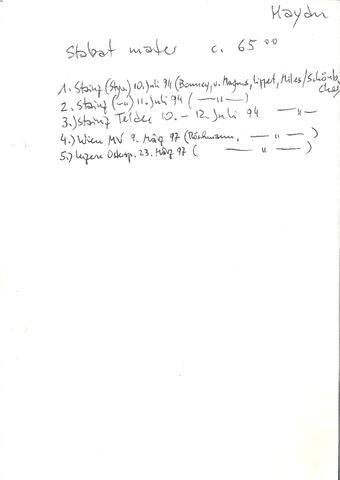 Haydn
Stabat mater c. 65 00
1. Stainz (Styr.) 10. Juli 94 (Bonney, v. Magnus, Lippert, Miles/Schönb.
Chor)
2. Stainz (-"-) 11. Juli 94 ( — " — )
3.) Stainz Teldec 10. - 12. Juli 94 — " —
4.) Wien MV 9. März 97 (Röschmann, — " — )
5.) Luzern Ostersp. 23. März 97 ( — " — )